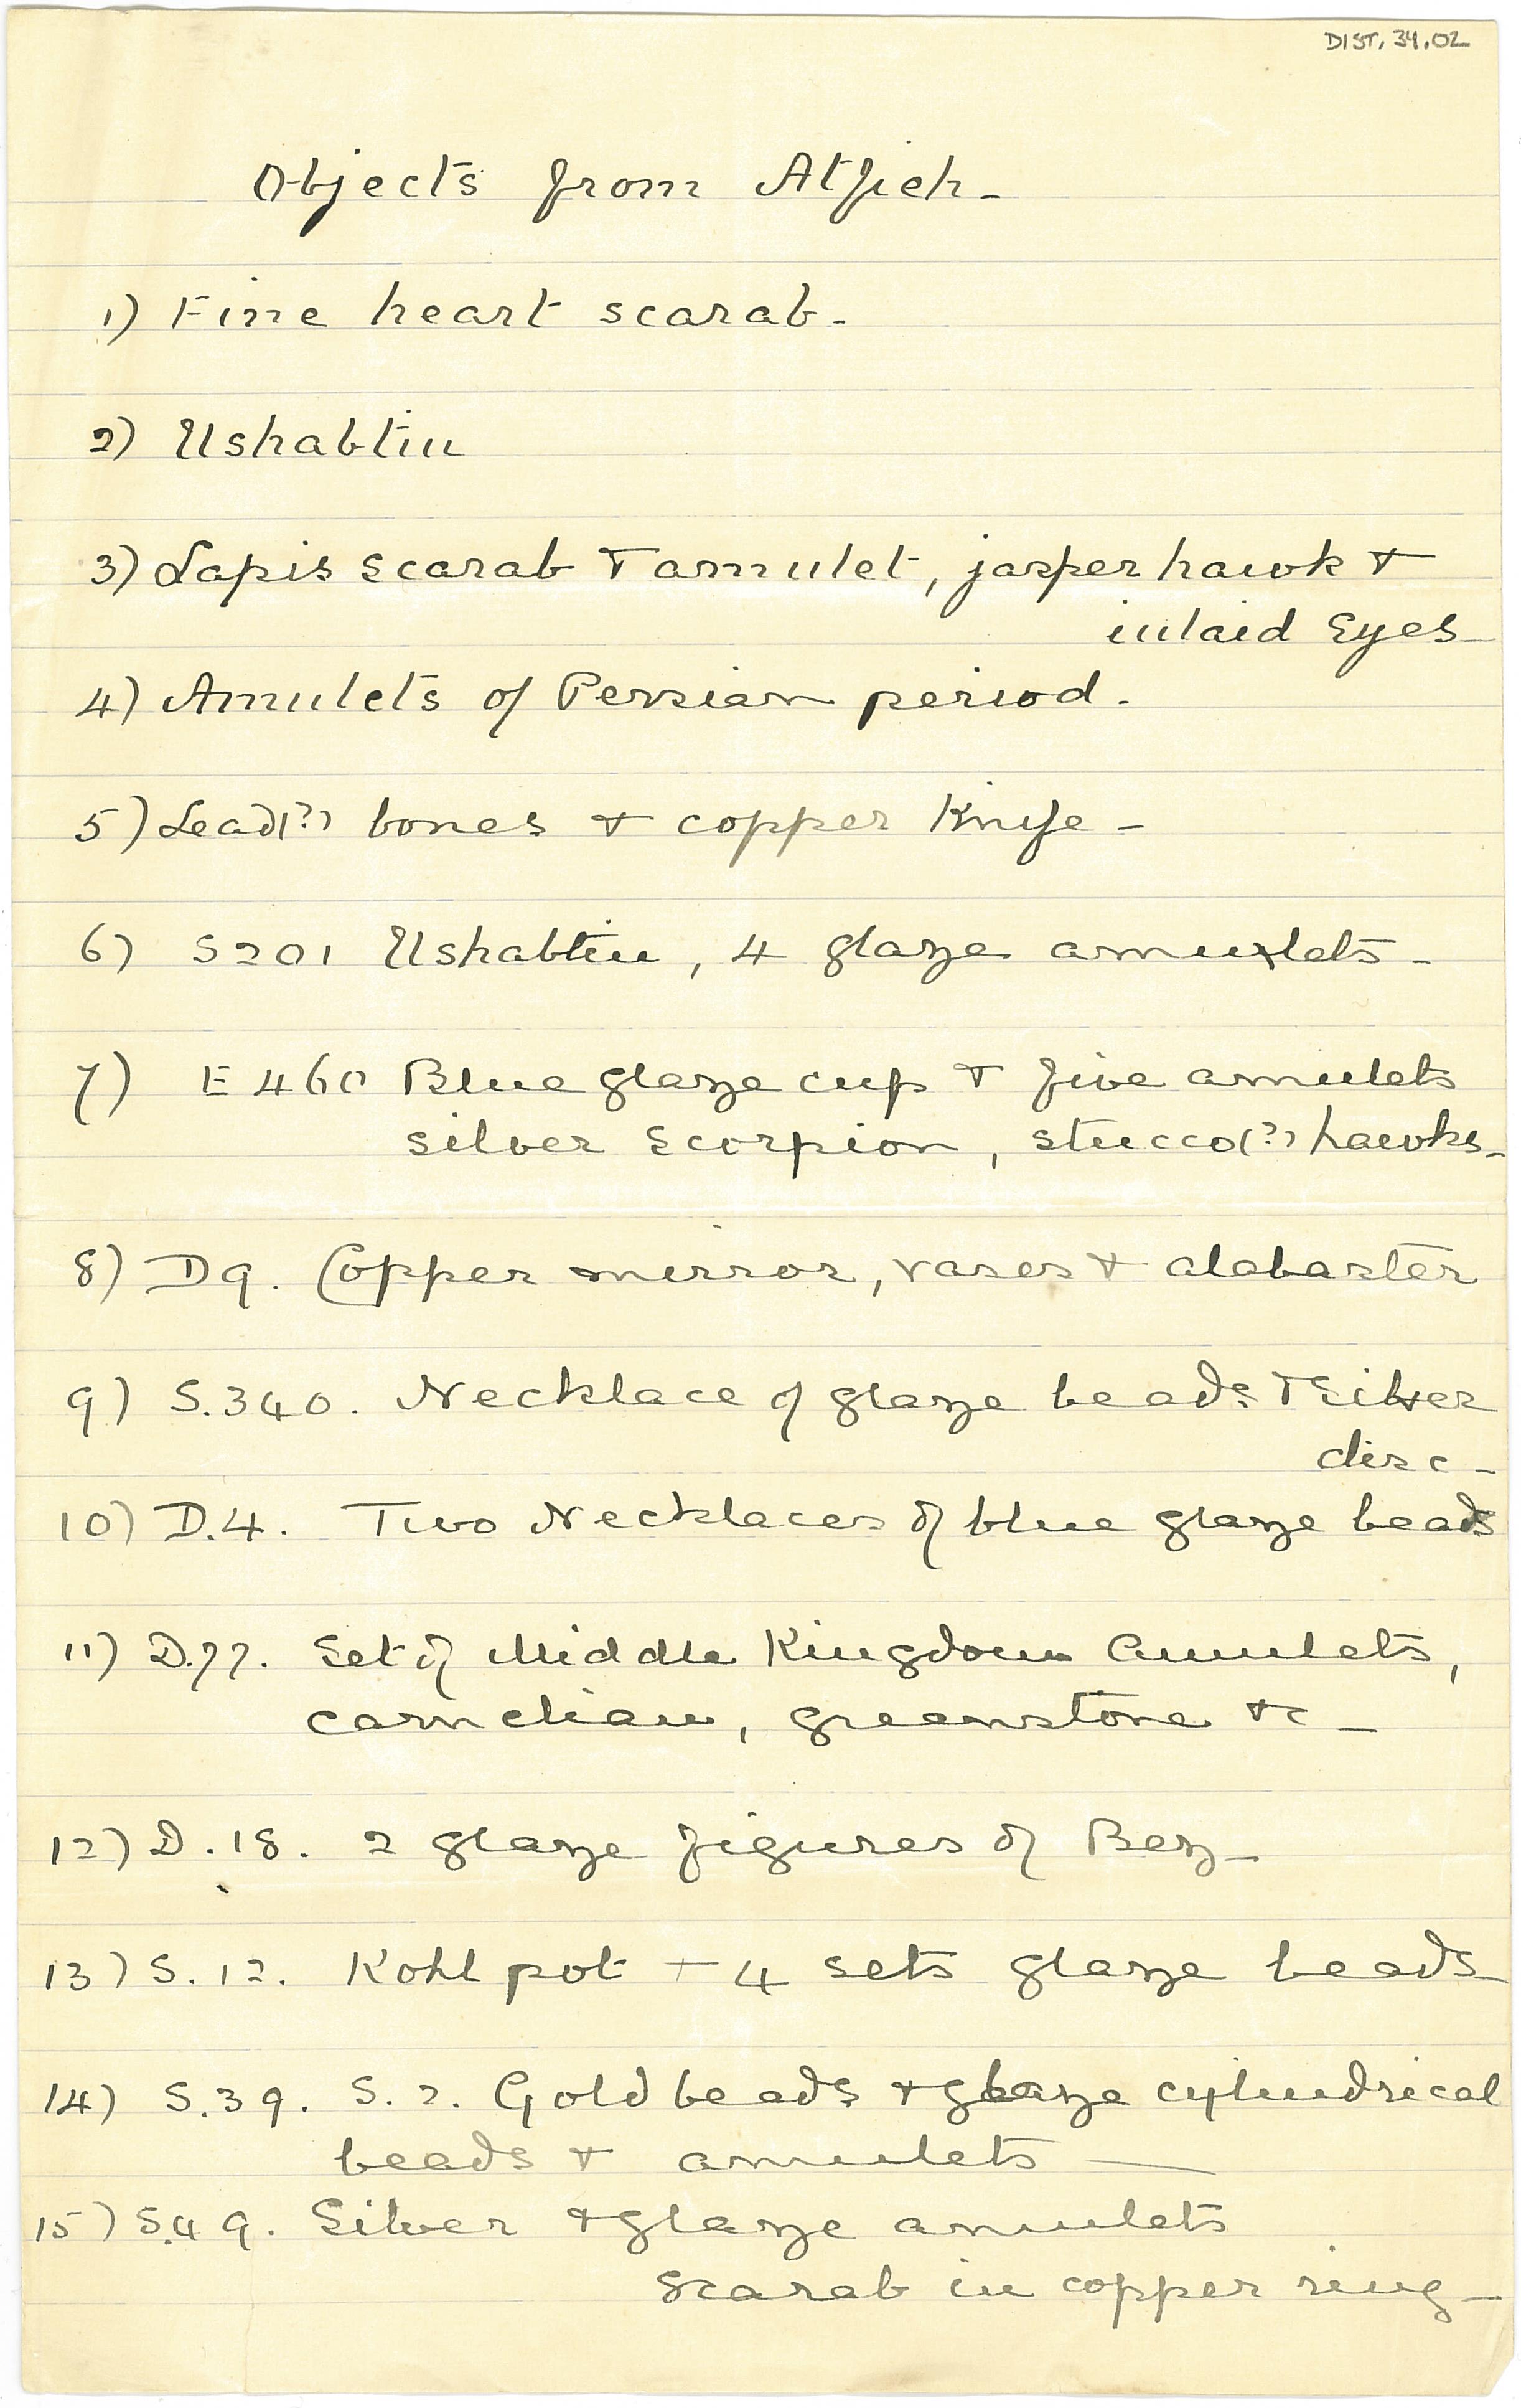 DIST. 34.02
Objects from Atfieh -
1) Fine heart scarab -
2) Ushabtiu
3) Lapis scarab & amulet, jasper hawk &
inlaid Eyes -
4) Amulets of Persian period .
5) Lead(?) bones & copper Knife -
6) S201 Ushabtiu, 4 glaze amulets -
7) E460 Blue glaze cup & five amulets
silver scorpion, stucco(?) hawks -
8) D9. Copper mirror, vases & alabaster
9) S.340. Necklace of glaze beads & silver
disc -
10) D.4. Two Necklaces of blue glaze beads
11) D.77. Set of Middle Kingdom Amulets,
carnelian, greenstone &c -
12) D.18. 2 glaze figures of Bez -
13) S.12. Kohl pot + 4 sets glaze beads
14) S.39. S.2. Gold beads & glaze cylindrical
beads & amulets —
15) S.49. Silver & glaze amulets
Scarab in copper ring -